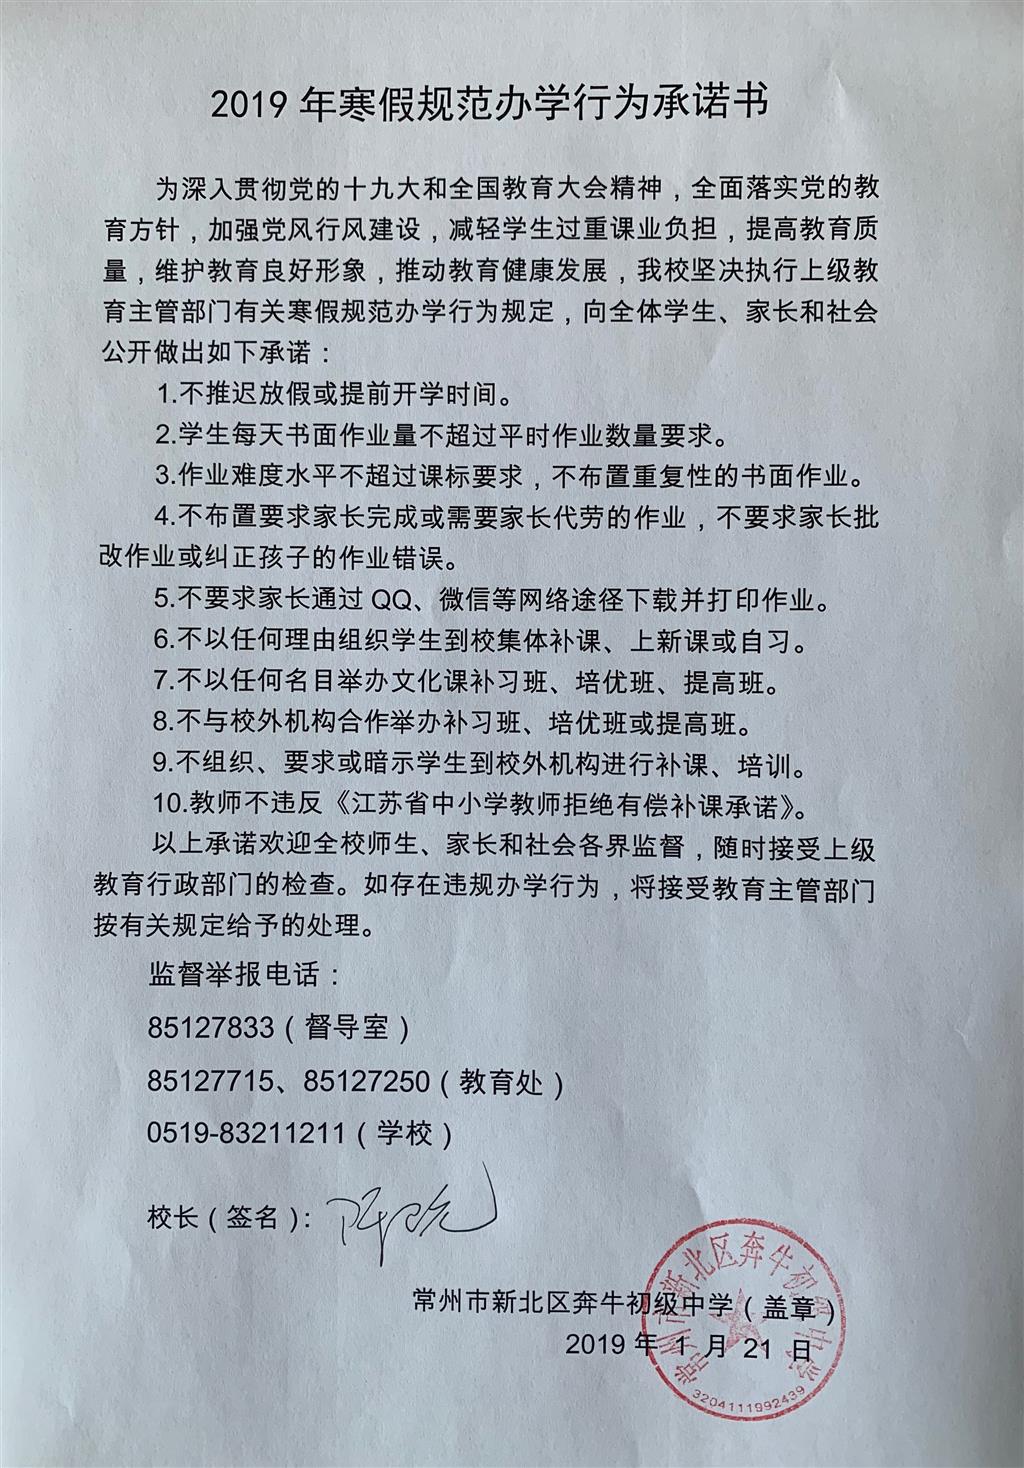 2019 年寒假规范办学行为承诺书
为深入贯彻党的十九大和全国教育大会精神，全面落实党的教
育方针，加强党风行风建设，减轻学生过重课业负担，提高教育质
量，维护教育良好形象，推动教育健康发展，我校坚决执行上级教
育主管部门有关寒假规范办学行为规定，向全体学生、家长和社会
公开做出如下承诺：
1.不推迟放假或提前开学时间。
2.学生每天书面作业量不超过平时作业数量要求。
3.作业难度水平不超过课标要求，不布置重复性的书面作业。
4.不布置要求家长完成或需要家长代劳的作业，不要求家长批
改作业或纠正孩子的作业错误。
5.不要求家长通过 QQ、微信等网络途径下载并打印作业。
6.不以任何理由组织学生到校集体补课、上新课或自习。
7.不以任何名目举办文化课补习班、培优班、提高班。
8.不与校外机构合作举办补习班、培优班或提高班。
9.不组织、要求或暗示学生到校外机构进行补课、培训。
10.教师不违反《江苏省中小学教师拒绝有偿补课承诺》。
以上承诺欢迎全校师生、家长和社会各界监督，随时接受上级
教育行政部门的检查。如存在违规办学行为，将接受教育主管部门
按有关规定给予的处理。
监督举报电话：
85127833（督导室）
85127715、85127250（教育处）
0519-83211211（学校）
校长（签名）：
常州市新北区奔牛初级中学（盖章）
2019 年 1 月 21 日
常州市新北区奔牛初级中学
3204111992439